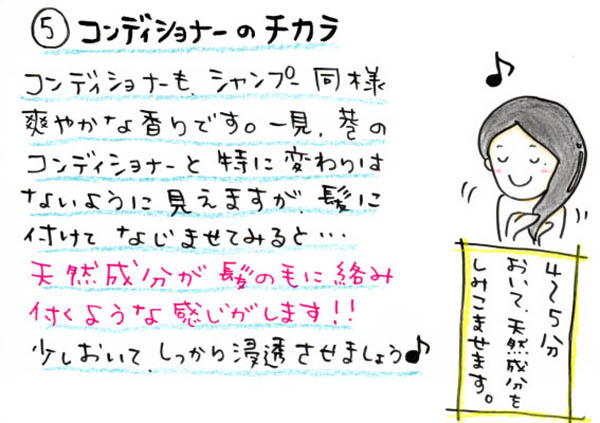 ⑤ コンディショナーのチカラ
コンディショナーも、シャンプー同様
爽やかな香りです。一見、巷の
コンディショナーと特に変わりは
ないように見えますが、髪に
付けてなじませてみると…
天然成分が髪の毛に絡み
付くような感じがします!!
少しおいて、しっかり浸透させましょう♪
4〜5分
おいて、天然成分を
しみこませます。